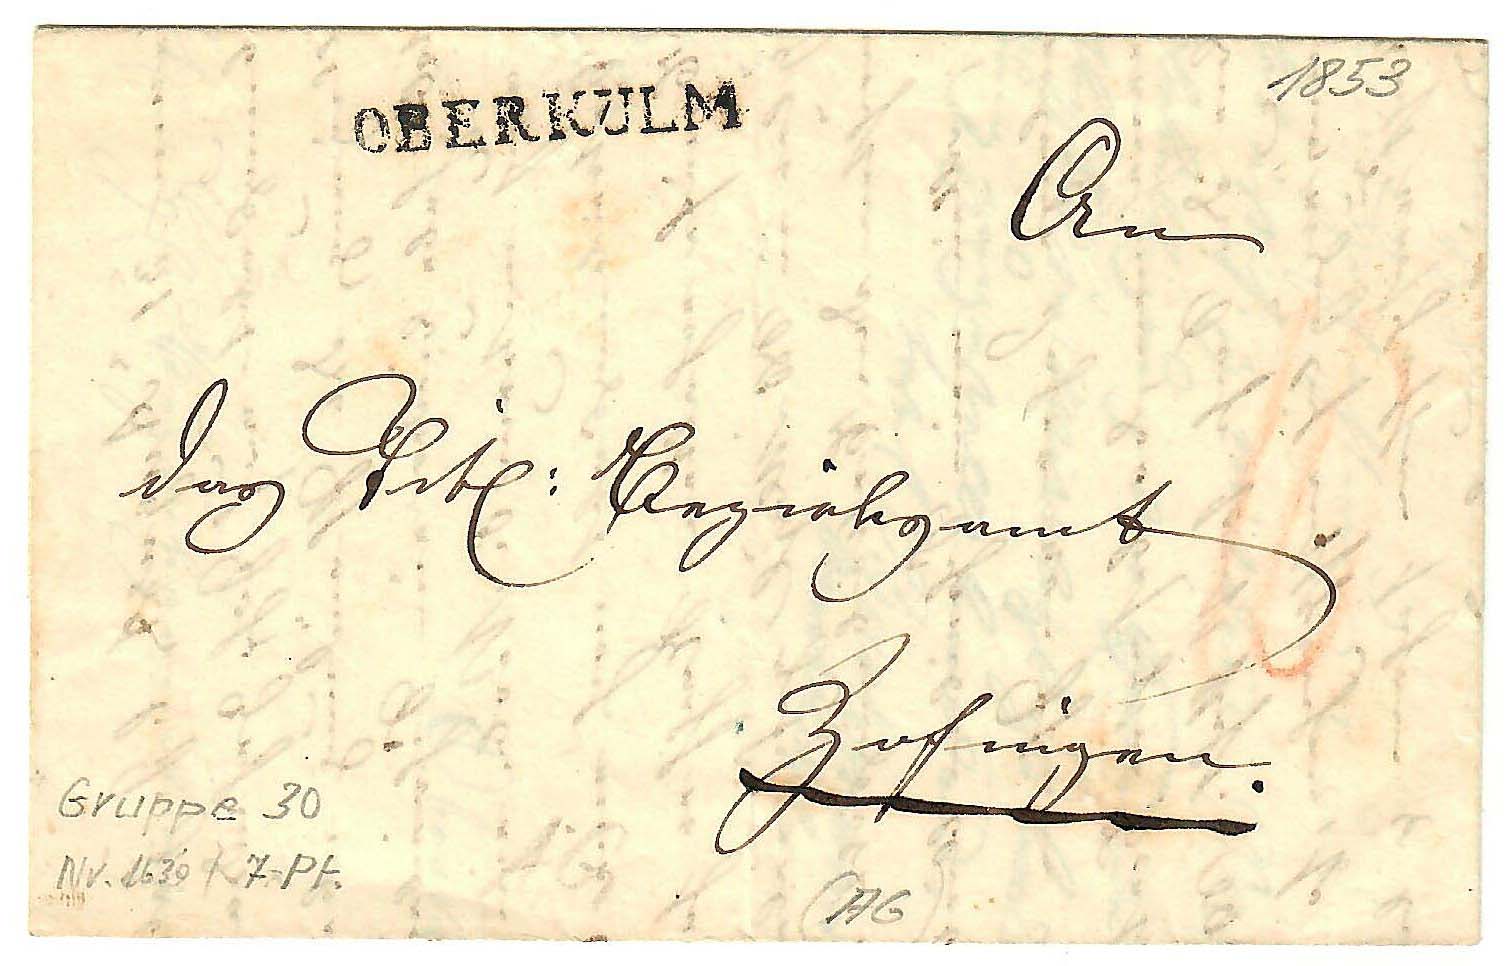 1853
OBERKULM
An
das Titl: Bezirksamt
Zofingen.
Gruppe 30
Nr. 1630 / 7-Pt.
(AG)